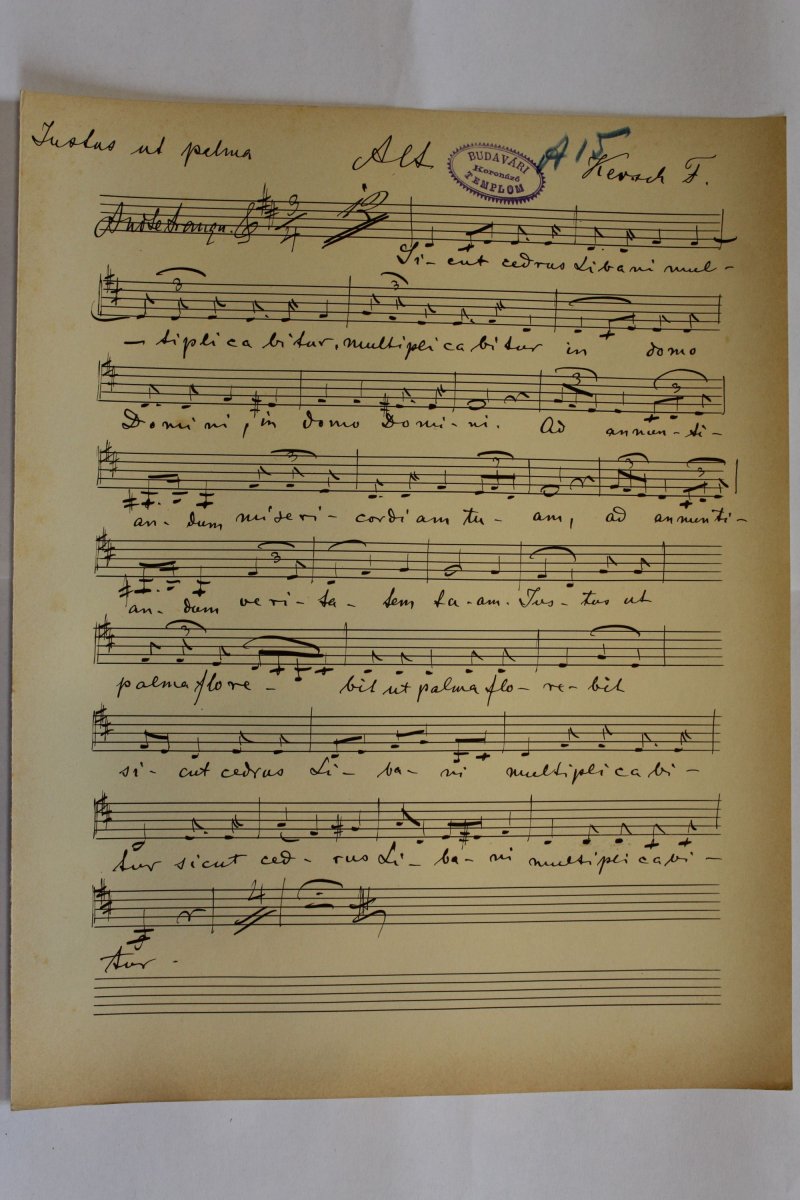 Iustus ut palma
Alt
BUDAVÁRI
Koronázó
TEMPLOM
A 15
Kersch F.
3
4
12
Si- cut cedrus Libani mul-
3 3
- tiplicabitur, multiplicabitur in domo
3 3
Domini, in domo Domi-ni. Ad annun-ti-
3 3 3 3
an- dum miseri- cordiam tu- am, ad annunti-
3
an- dum veri- ta- tem tu-am. Jus- tus ut
3
palma flore- bit ut palma flo- re- bit
si- cut cedrus Li- ba- ni multiplicabi-
tur sicut ced- rus Li- ba- ni multiplicabi-
4
tur.